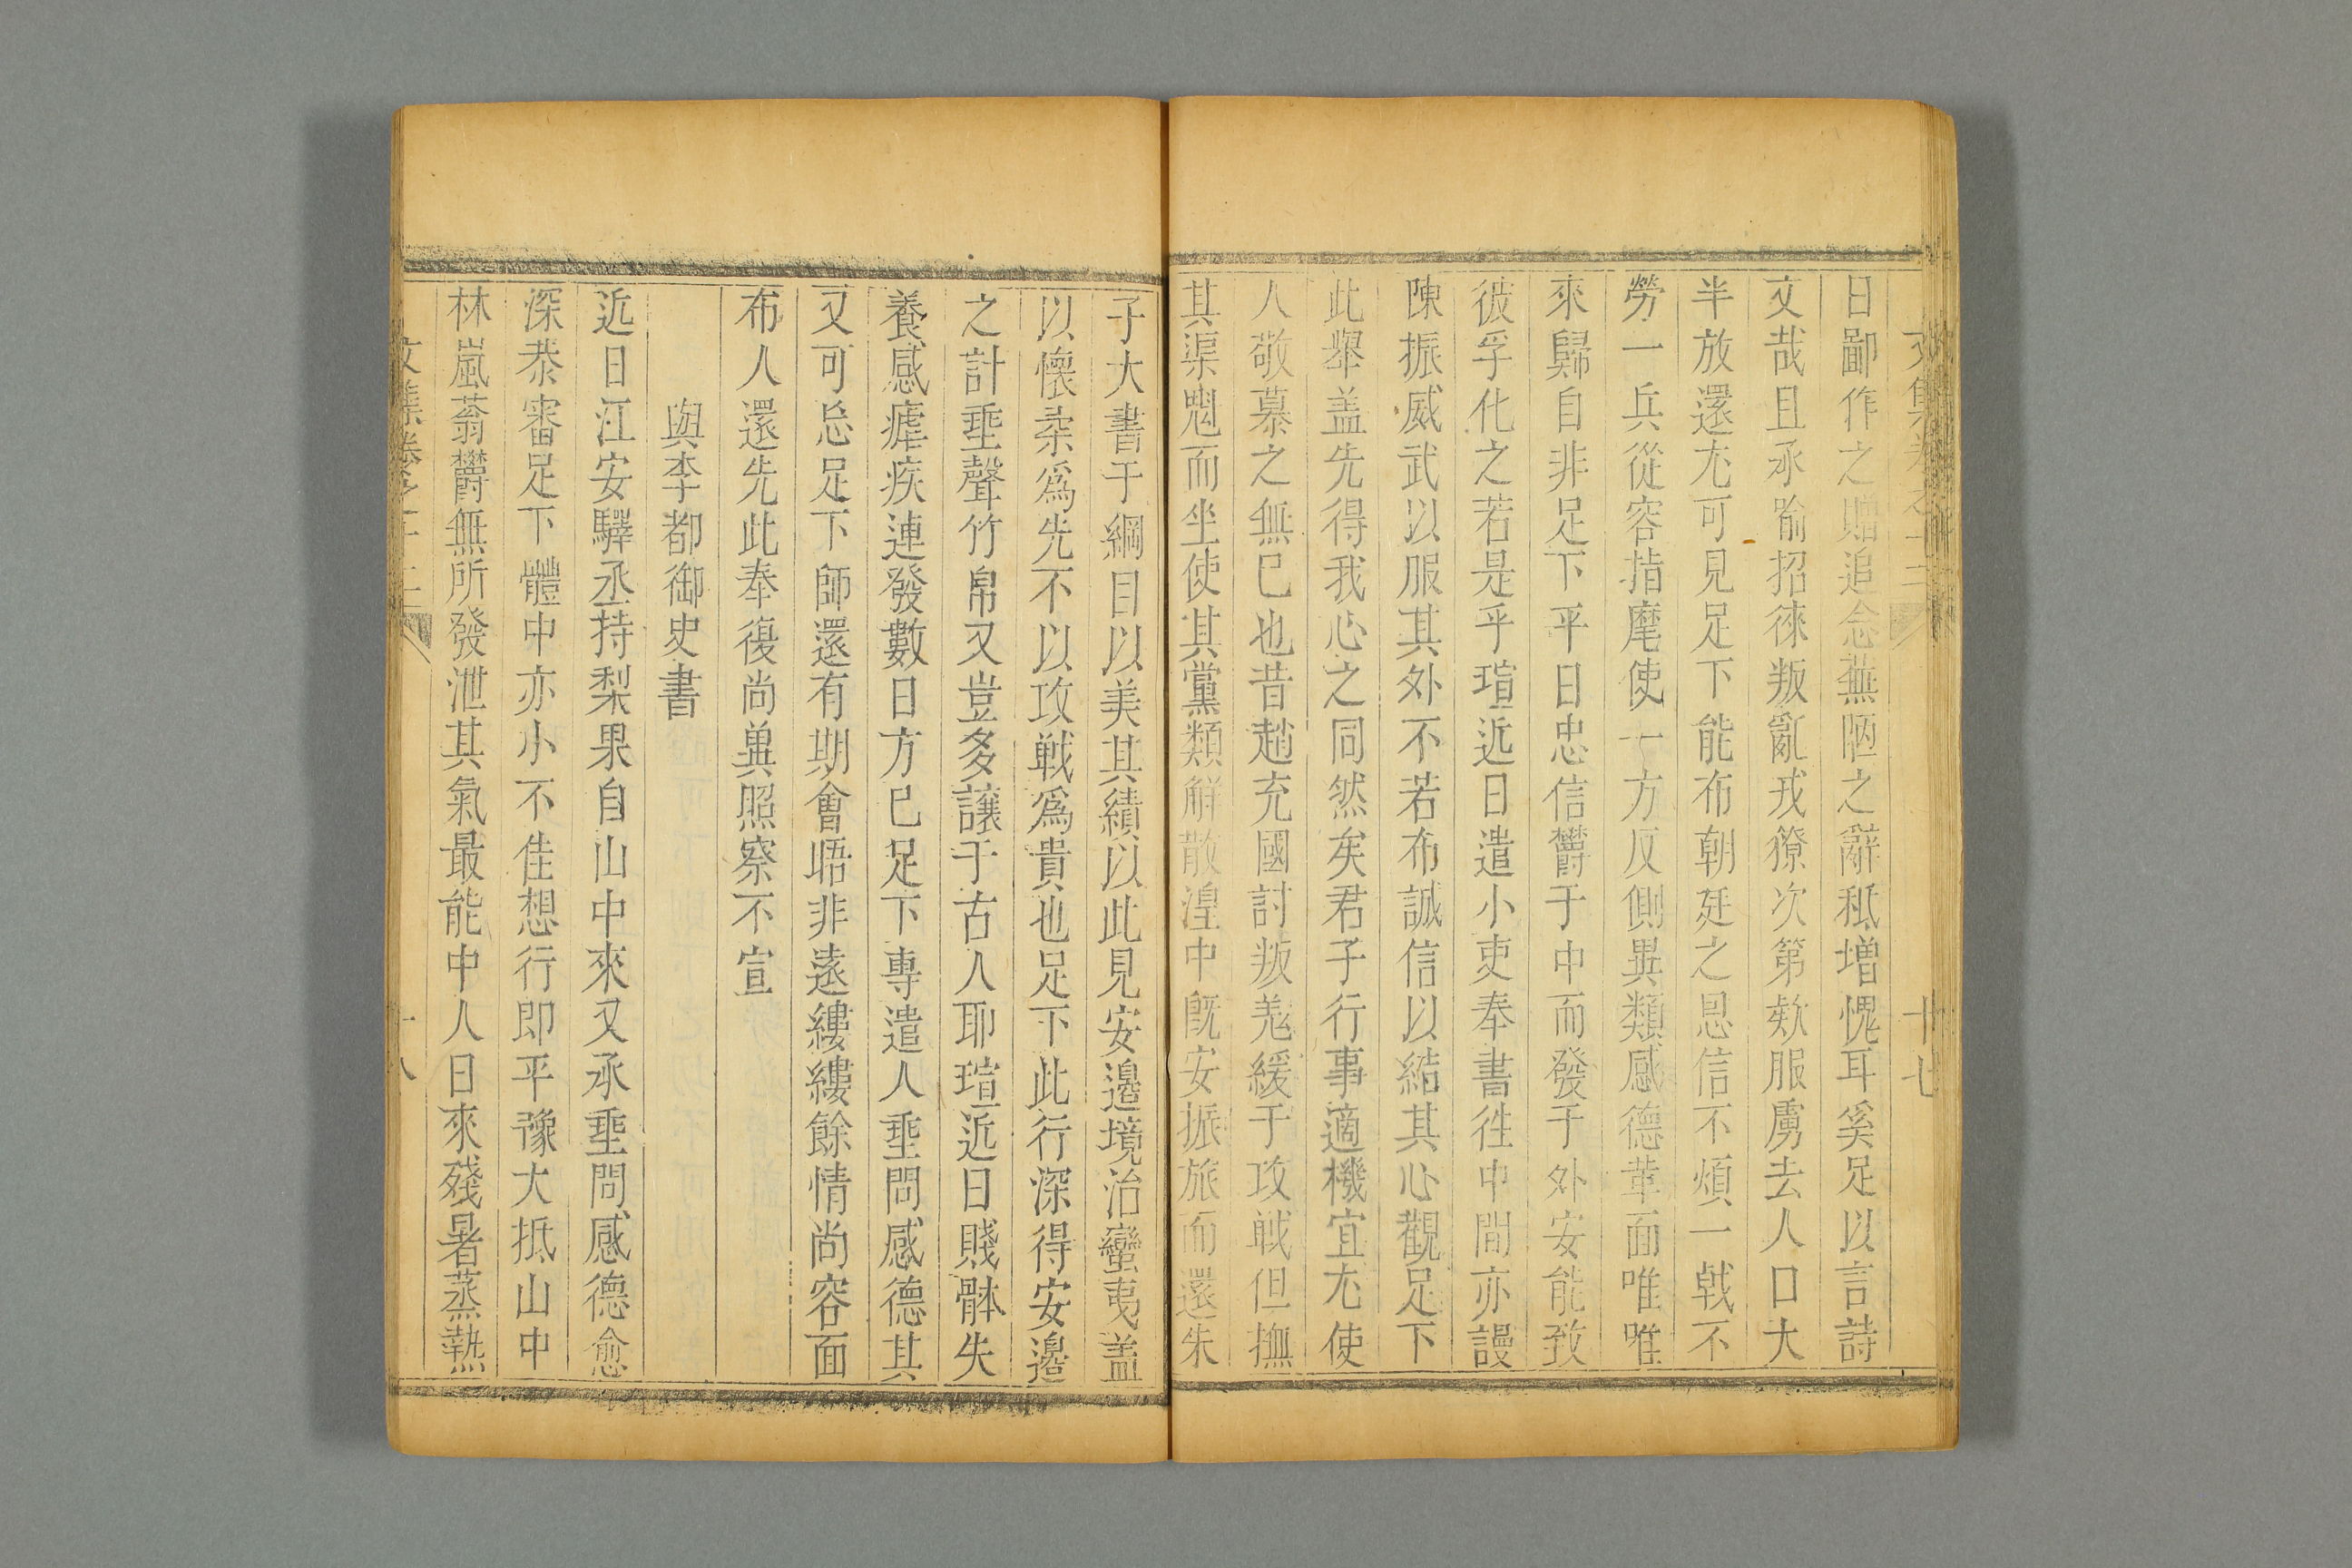 文集卷之十二 十七
日鄙作之贈追念蕪陋之辭秪増愧耳奚足以言詩
文哉且承喻招徠叛亂戎獠次第欵服虜去人口大
半放還尤可見足下能布朝廷之恩信不煩一戟不
勞一兵從容指麾使一方反側異類感德革面唯唯
來歸自非足下平日忠信欝于中而發于外安能致
彼孚化之若是乎瑄近日遣小吏奉書徃中間亦謾
陳振威武以服其外不若布誠信以結其心觀足下
此舉盖先得我心之同然矣君子行事適機宜尤使
人敬慕之無已也昔趙充國討叛羗緩于攻戰但撫
其渠魁而坐使其黨類解散湟中旣安振旅而還朱
子大書于綱目以美其績以此見安邊境治蠻夷盖
以懷柔爲先不以攻戰爲貴也足下此行深得安邊
之計垂聲竹帛又豈多讓于古人耶瑄近日賤骵失
養感瘧疾連發數日方已足下專遣人垂問感德其
又可忘足下師還有期會晤非遠縷縷餘情尚容面
布人還先此奉復尚兾照察不宣
與李都御史書
近日江安驛丞持梨果自山中來又承垂問感德愈
深恭審足下體中亦小不佳想行即平豫大抵山中
林嵐蓊欝無所發泄其氣最能中人日來殘暑蒸熱
文集卷之十二 十八